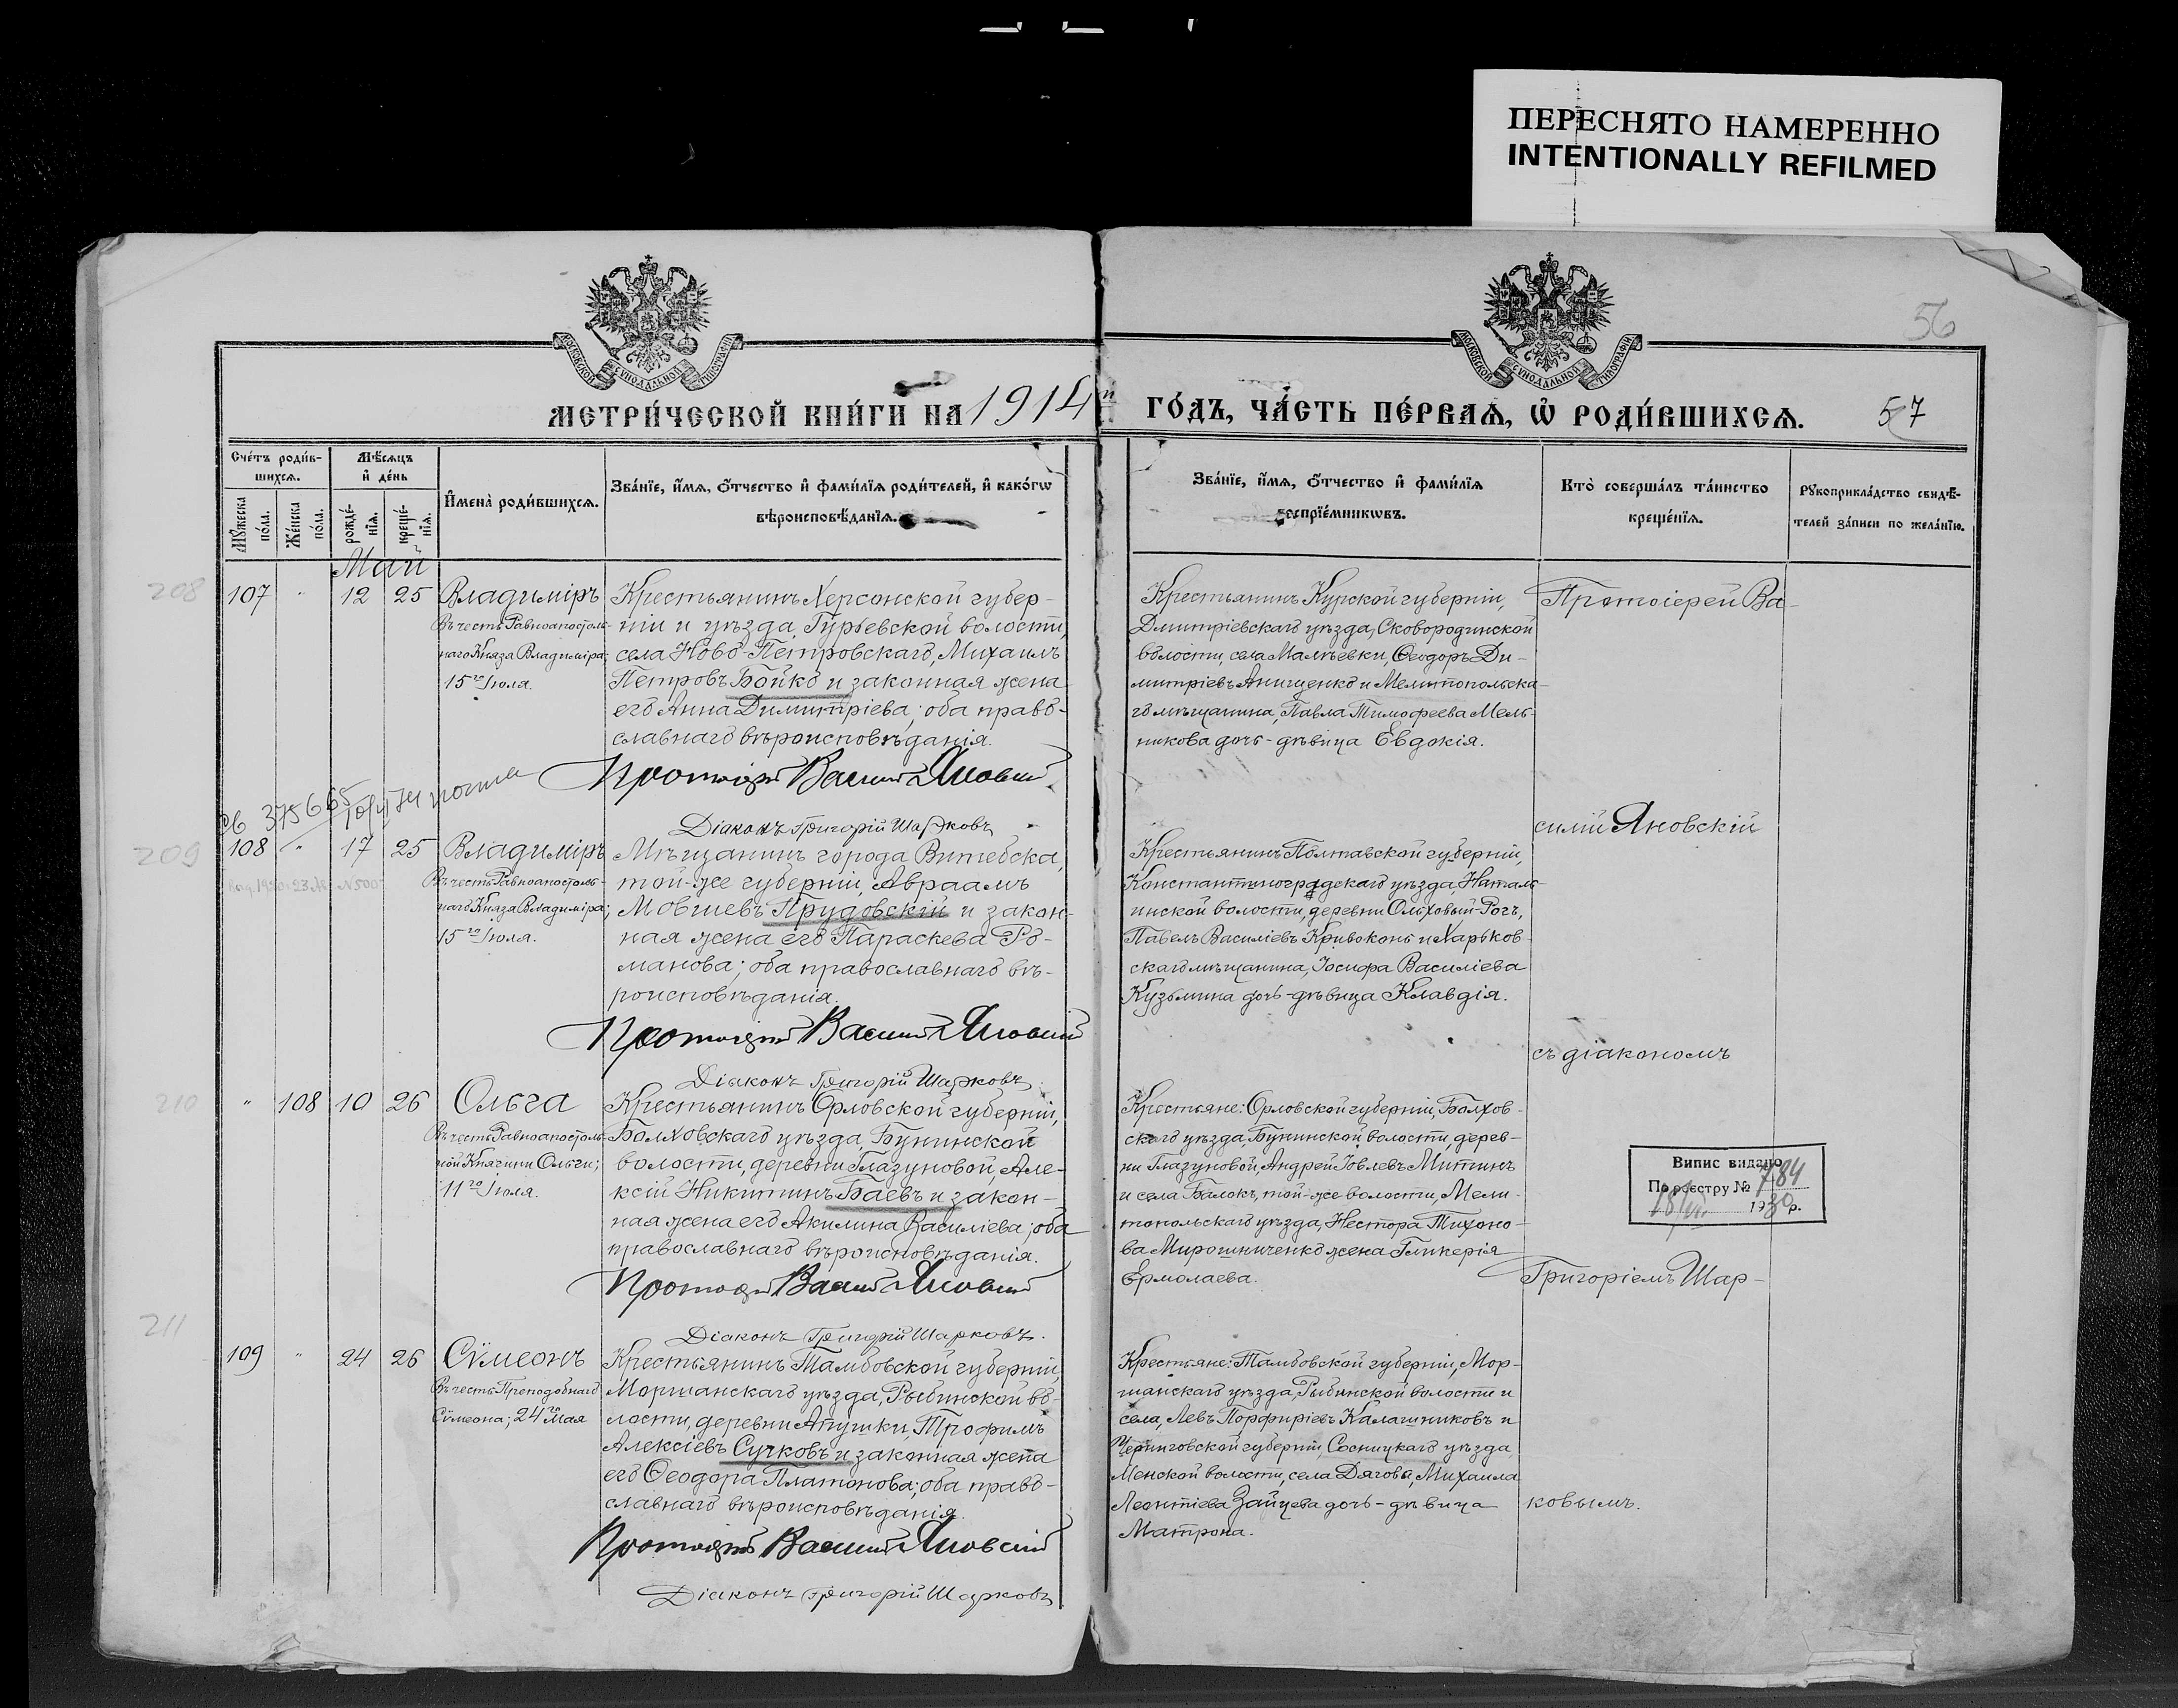 ПЕРЕСНЯТО НАМЕРЕННО
INTENTIONALLY REFILMED
МОСКОВСКОЙ СѴНОДАЛЬНОЙ ТИПОГРАФІИ
МОСКОВСКОЙ СѴНОДАЛЬНОЙ ТИПОГРАФІИ
56
МЕТРИ́ЧЕСКОЙ КНИ́ГИ НА 1914й ГО́ДЪ, ЧА́СТЬ ПЕ́РВАѦ, Ѡ҆ РОДИ́ВШИХСѦ.
57
Сче́тъ роди́в-
шихсѧ.
Мѣ́сѧцъ
и҆ де́нь
Мꙋ́жеска
по́ла.
Же́нска
по́ла.
рожде́-
нїѧ.
креще́-
нїѧ.
И҆мена̀ роди́вшихсѧ.
Зва́нїе, и҆́мѧ, ѻ҆́тчество и҆ фами́лїѧ роди́телей, и҆ како́гѡ
вѣроисповѣ́данїѧ.
Зва́нїе, и҆́мѧ, ѻ҆́тчество и҆ фами́лїѧ
воспрїе́мникѡвъ.
Кто̀ соверша́лъ та́инство
креще́нїѧ.
Рꙋкоприкла́дство свидѣ́-
телей за́писи по жела́нїю.
Май
208
107
"
12
25
Владиміръ
Въ честь Равноапостоль-
наго Князя Владиміра;
15го Іюля.
Крестьянинъ Херсонской губер-
ніи и уѣзда, Гурьевской волости,
села Ново-Петровскаго, Михаилъ
Петровъ Бойко и законная жена
его Анна Димитріева; оба право-
славнаго вѣроисповѣданія.
Протоіерей Василій Яновскій
Діаконъ Григорій Шарковъ
Крестьянинъ Курской губерніи,
Дмитріевскаго уѣзда, Сковородинской
волости, села Малѣевки, Ѳеодоръ Ди-
митріевъ Анищенко и Мелитопольска-
го мѣщанина, Павла Тимофеева Мель-
никова дочь-дѣвица Евдокія.
Протоіерей Ва-
209
108
"
17
25
Владиміръ
Въ честь Равноапостоль-
наго Князя Владиміра;
15го Іюля.
Мѣщанинъ города Витебска,
той-же губерніи, Авраамъ
Мовшевъ Прудовскій и закон-
ная жена его Параскева Ро-
манова; оба православнаго вѣ-
роисповѣданія.
Протоіерей Василій Яновскій
Діаконъ Григорій Шарковъ
Крестьянинъ Полтавской губерніи,
Константиноградскаго уѣзда, Наталь-
инской волости, деревни Ольховый-Рогъ,
Павелъ Василіевъ Кривоконь и Харьков-
скаго мѣщанина, Іосифа Василіева
Кузьмина дочь-дѣвица Клавдія.
силій Яновскій
съ діакономъ
210
"
108
10
26
Ольга
Въ честь Равноапостоль-
ной Княгини Ольги;
11го Іюля.
Крестьянинъ Орловской губерніи,
Болховскаго уѣзда, Бунинской
волости, деревни Глазуновой, Але-
ксій Никитинъ Баевъ и закон-
ная жена его Акилина Василіева; оба
православнаго вѣроисповѣданія.
Протоіерей Василій Яновскій
Діаконъ Григорій Шарковъ.
Крестьяне: Орловской губерніи, Болхов-
скаго уѣзда, Бунинской волости, дерев-
ни Глазуновой, Андрей Іовлевъ Митинъ
и села Балокъ, той-же волости, Мели-
топольскаго уѣзда, Нестора Тихоно-
ва Мирошниченко жена Гликерія
Ермолаева.
Випис видано
По реєстру № 784
1930р.
Григоріемъ Шар-
211
109
"
24
26
Сѵмеонъ
Въ честь Преподобнаго
Сѵмеона; 24го Мая
Крестьянинъ Тамбовской губерніи,
Моршанскаго уѣзда, Рыбинской во-
лости, деревни Апушки, Трофимъ
Алексіевъ Сучковъ и законная жена
его Ѳеодора Платонова; оба право-
славнаго вѣроисповѣданія.
Протоіерей Василій Яновскій
Діаконъ Григорій Шарковъ
Крестьяне: Тамбовской губерніи, Мор-
шанскаго уѣзда, Рыбинской волости и
села, Левъ Порфиріевъ Калашниковъ и
Черниговской губерніи, Сосницкаго уѣзда,
Менской волости, села Дягова, Михаила
Леонтіева Зайцева дочь-дѣвица
Матрона.
ковымъ.